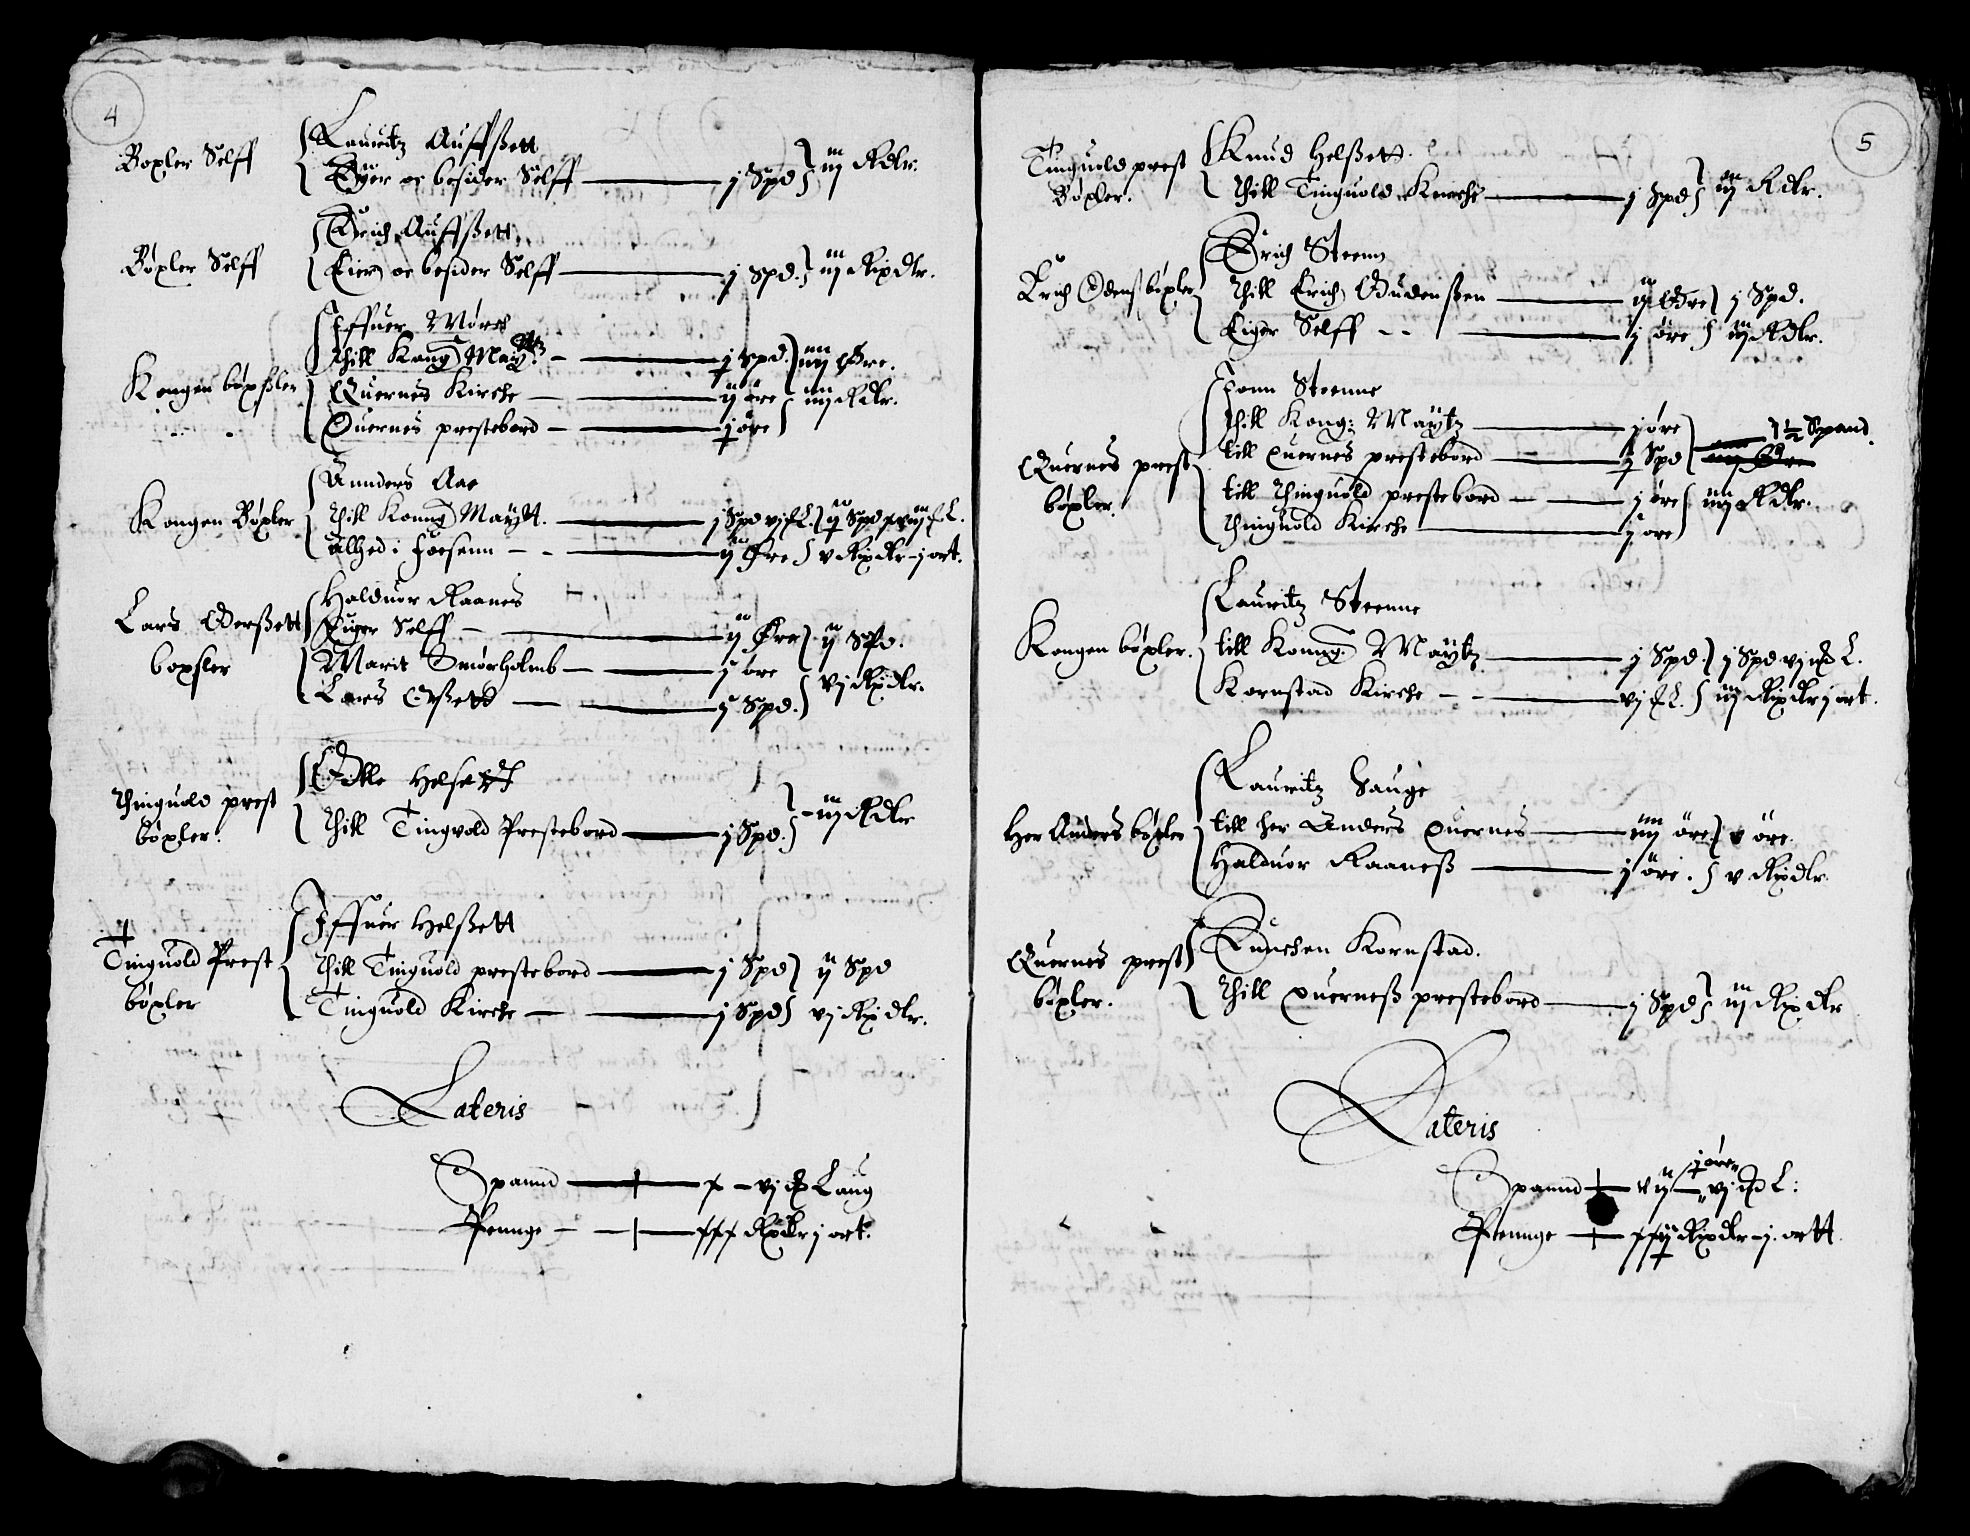 4
Boxler Selff
Lauritz Auffßett
Eyer oc besider Selff — j Spd
iij Rdlr.
Bøxler Selff
Erich Auffßett
Eier oc besider Selff — j Spd.
iij Rixdlr.
Kongen bøxsler
Iffuer Mørch
thill Kong Maytz — j spd.
iiij Øre.
Quernes Kirche — ij øre
iiij Rdlr.
Quernes prestebord — j øre
Kongen Bøxler
Annders Aae
Thill Konng Maytt. — j Spd vj L.
Allhed i Foesenn — ij Øre
v Rixdlr - j ort.
Lars Oderßett
boxsler
Halduor Raanes
Eiger Selff — ij Øre
ij Spd.
Marit Smørholmb — j øre
vj Rixdlr.
Lars Erßett — j Spd.
Thinguold prest
bøxler.
Olle Helsett
Thill Tingvold Prestebord — j Spd.
iij Rdlr
Tinguold Prest
bøxler
Iffuer Helßett
Thill Tinguold prestebord — j Spd
ij Spd
Tinguold Kirche — j Spd
vj Rixdlr.
Lateris
Spannd — x - vj Laug
Pennge — xxx Rixdlr j ort.
5
Tinguold prest
Bøxler.
Knud Helßett.
Thill Tinguold Kirche — j Spd
iij Rdlr.
Erich Odenß bøxler
Erich Steenn
Thill Erich Gudenßen — ij Øre
j Spd.
Eiger Selff — j øre
iij Rdlr.
Quernes prest
bøxler.
Jonn Steenne
Thill Kong: Maytz — j øre
1½ Spand.
till Quernes prestebord — j Spd
till Thinguold prestebord — j øre
iiij Rdlr.
Thinguold Kirche — j øre
Kongen bøxler.
Lauritz Steenne
till Konng Maytz — j Spd.
j Spd vj L.
Kornstad Kirche — vj L.
iij Rixdlr j ort.
Her Anders bøxler
Lauritz Hauge
till her Anders Quernes — iiij øre
v øre.
Halduor Raaneß — j øre.
v Rixdlr.
Quernes prest
bøxler.
Kornstad.
Thill Querneß prestebord — j Spd
iij Rixdlr
Lateris
j øre
Spannd — vij — vj L:
Pennge — xxij Rixdlr - j. ortt.